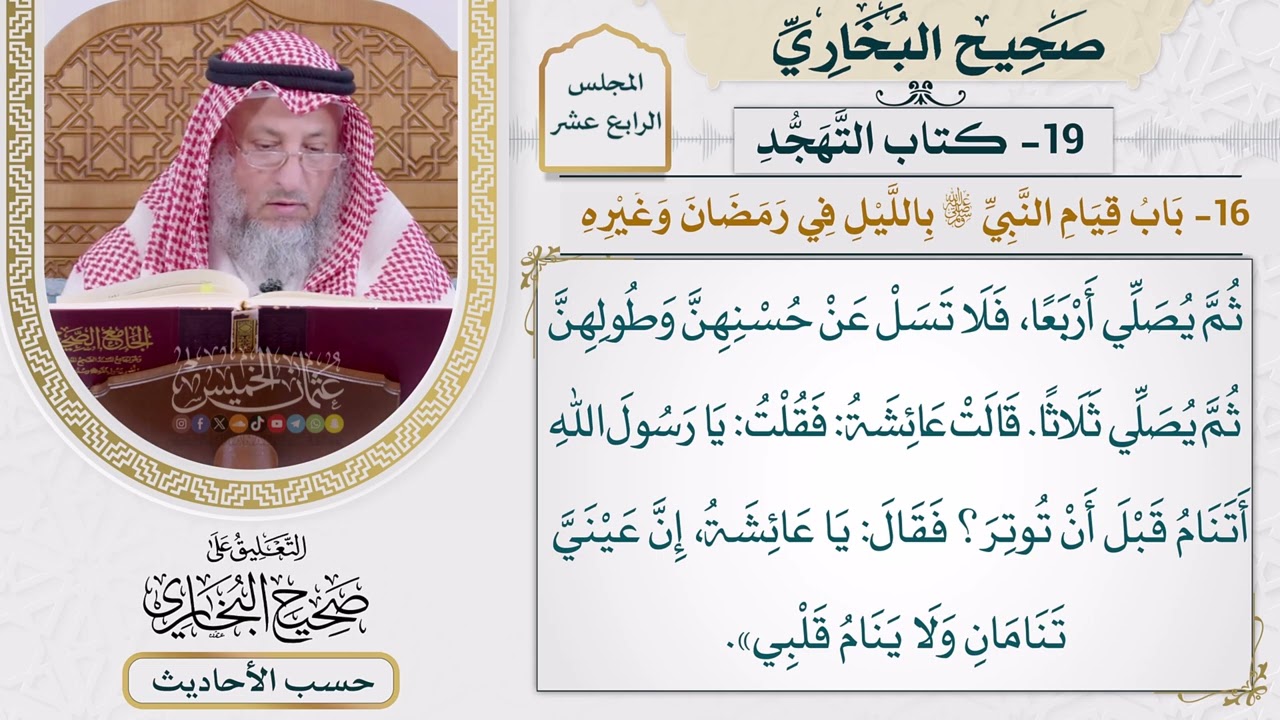 صَحِيح البُخَارِيِّ
المجلس
الرابع عشر
19- كتاب التَّهَجُّدِ
16- بَابُ قِيَامِ النَّبِيِّ ﷺ بِاللَّيْلِ فِي رَمَضَانَ وَغَيْرِهِ
ثُمَّ يُصَلِّي أَرْبَعًا، فَلَا تَسَلْ عَنْ حُسْنِهِنَّ وَطُولِهِنَّ
ثُمَّ يُصَلِّي ثَلَاثًا. قَالَتْ عَائِشَةُ: فَقُلْتُ: يَا رَسُولَ اللهِ
أَتَنَامُ قَبْلَ أَنْ تُوتِرَ؟ فَقَالَ: يَا عَائِشَةُ، إِنَّ عَيْنَيَّ
تَنَامَانِ وَلَا يَنَامُ قَلْبِي».
الجامع الصحيح
عثمان الخميس
التَّعْلِيقُ عَلَى
صَحِيح البُخَارِي
حسب الأحاديث